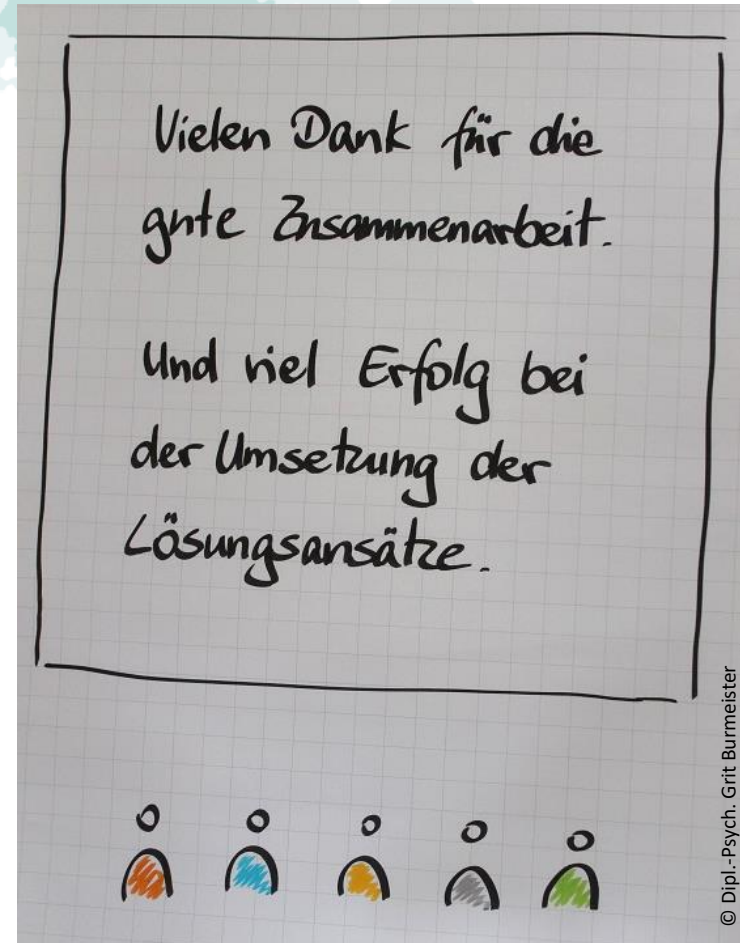 Vielen Dank für die
gute Zusammenarbeit.
Und viel Erfolg bei
der Umsetzung der
Lösungsansätze.
© Dipl.-Psych. Grit Burmeister